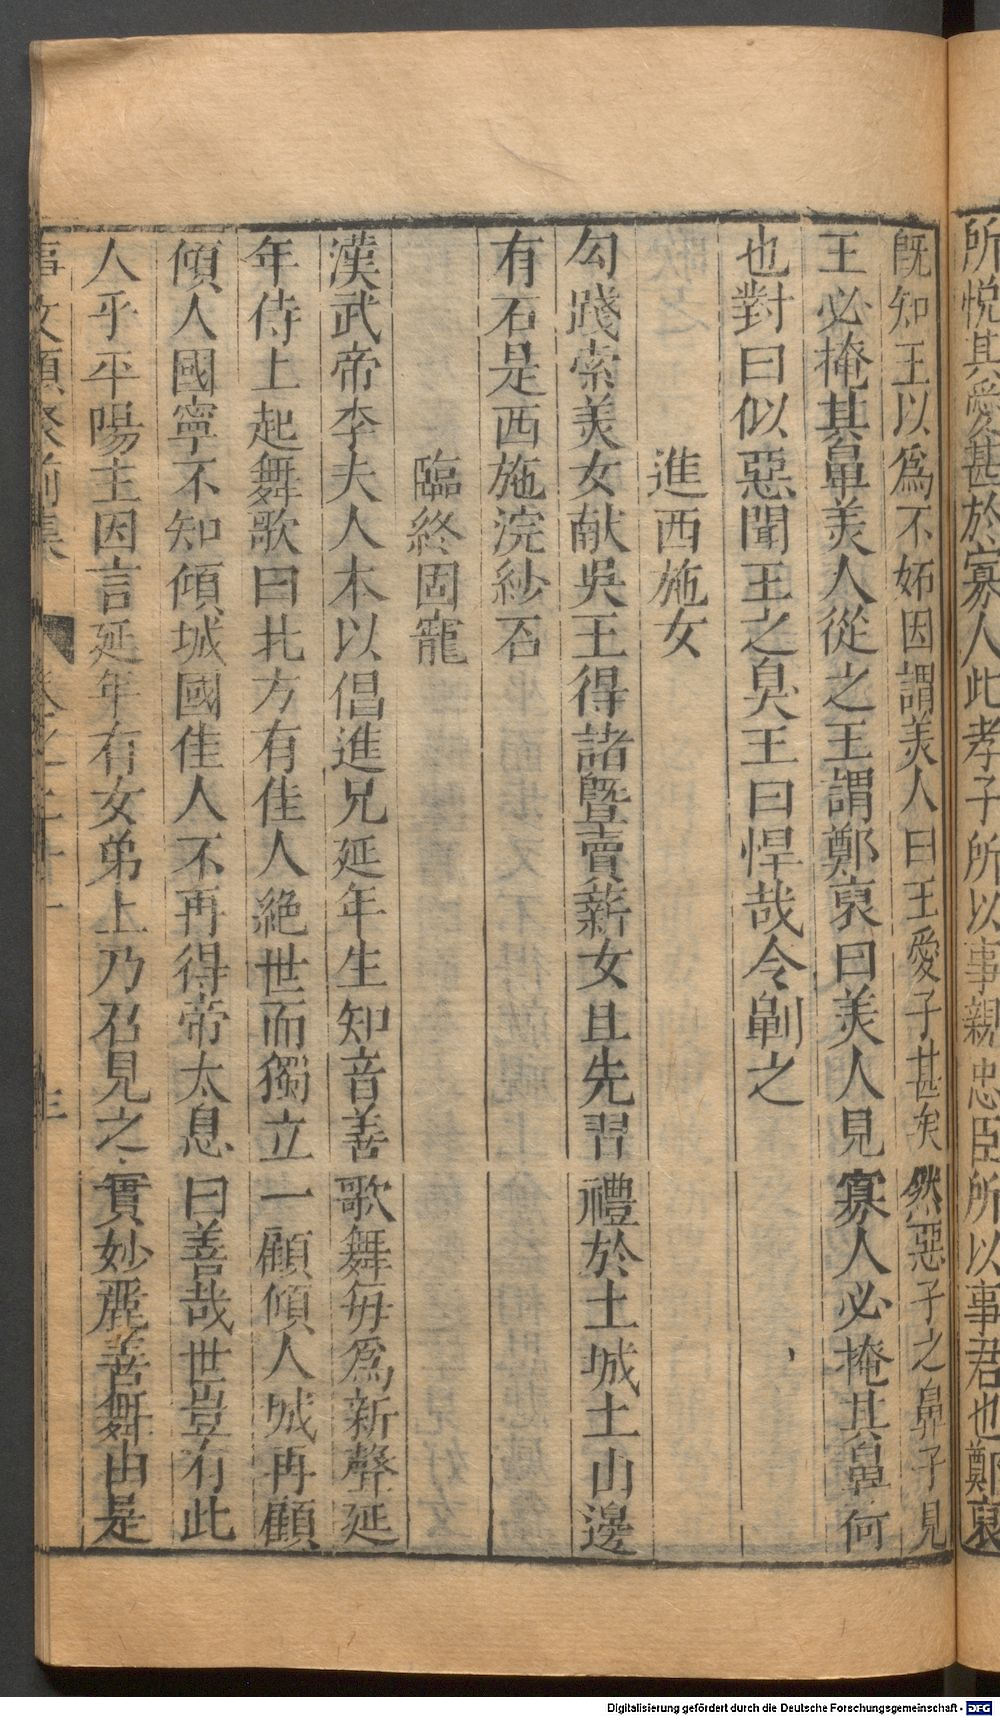 所悅其愛甚於寡人此孝子所以事親忠臣所以事君也鄭袖
既知王以爲不妬因謂美人曰王愛子甚矣然惡子之鼻子見
王必掩其鼻美人從之王謂鄭袖曰美人見寡人必掩其鼻何
也對曰似惡聞王之臭王曰悍哉令劓之
進西施女
勾踐索美女献吳王得諸暨賣薪女且先習禮於土城土山邊
有石是西施浣紗石
臨終固寵
漢武帝李夫人本以倡進兄延年生知音善歌舞每爲新聲延
年侍上起舞歌曰北方有佳人絕世而獨立一顧傾人城再顧
傾人國寧不知傾城國佳人不再得帝太息曰善哉世豈有此
人乎平陽主因言延年有女弟上乃召見之實妙麗善舞由是
事文類聚前集 卷之二十一
Digitalisierung gefördert durch die Deutsche Forschungsgemeinschaft - DFG